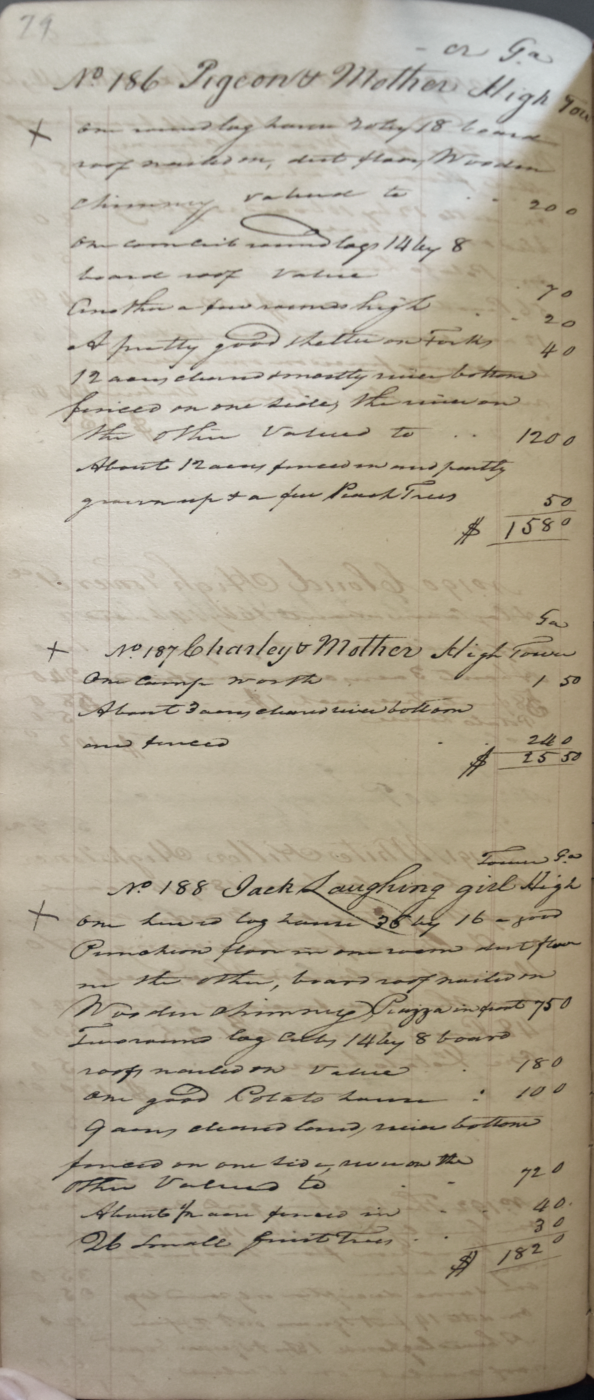 79
- or Ga
No 186 Pigeon & Mother High Tow
+ One round log house 20 by 18 board
roof nailed on, dirt floor, Wooden
chimney Valued to . . 200
One corn crib round logs 14 by 8
board roof Value 70
Another a few rounds high . . 20
A pretty good shelter on Forks 40
12 acres cleared mostly river bottom
fenced on one side, the river on
the other Valued to . . 1200
About 12 acres fenced in and partly
grown up & a few Peach Trees 50
$ 1580
Ga
+ No 187 Charley & Mother High Tower
One Camp worth 1 50
About 3 acres cleared river bottom
and fenced . . 240
$ 25 50
Tower Ga
No 188 Jack Laughing girl High
+ One hewed log house 36 by 16 a good
Puncheon floor in one room dirt floor
in the other, board roof nailed on
Wooden chimney Piazza in front 750
Two round log cribs 14 by 8 board
roofs nailed on Value . 180
One good Potato house : 100
9 acres cleared land, river bottom
fenced on one side, river on the
other Valued to . - 720
About acre fenced in . 40.
26 Small fruit Trees . . 30
$ 1820